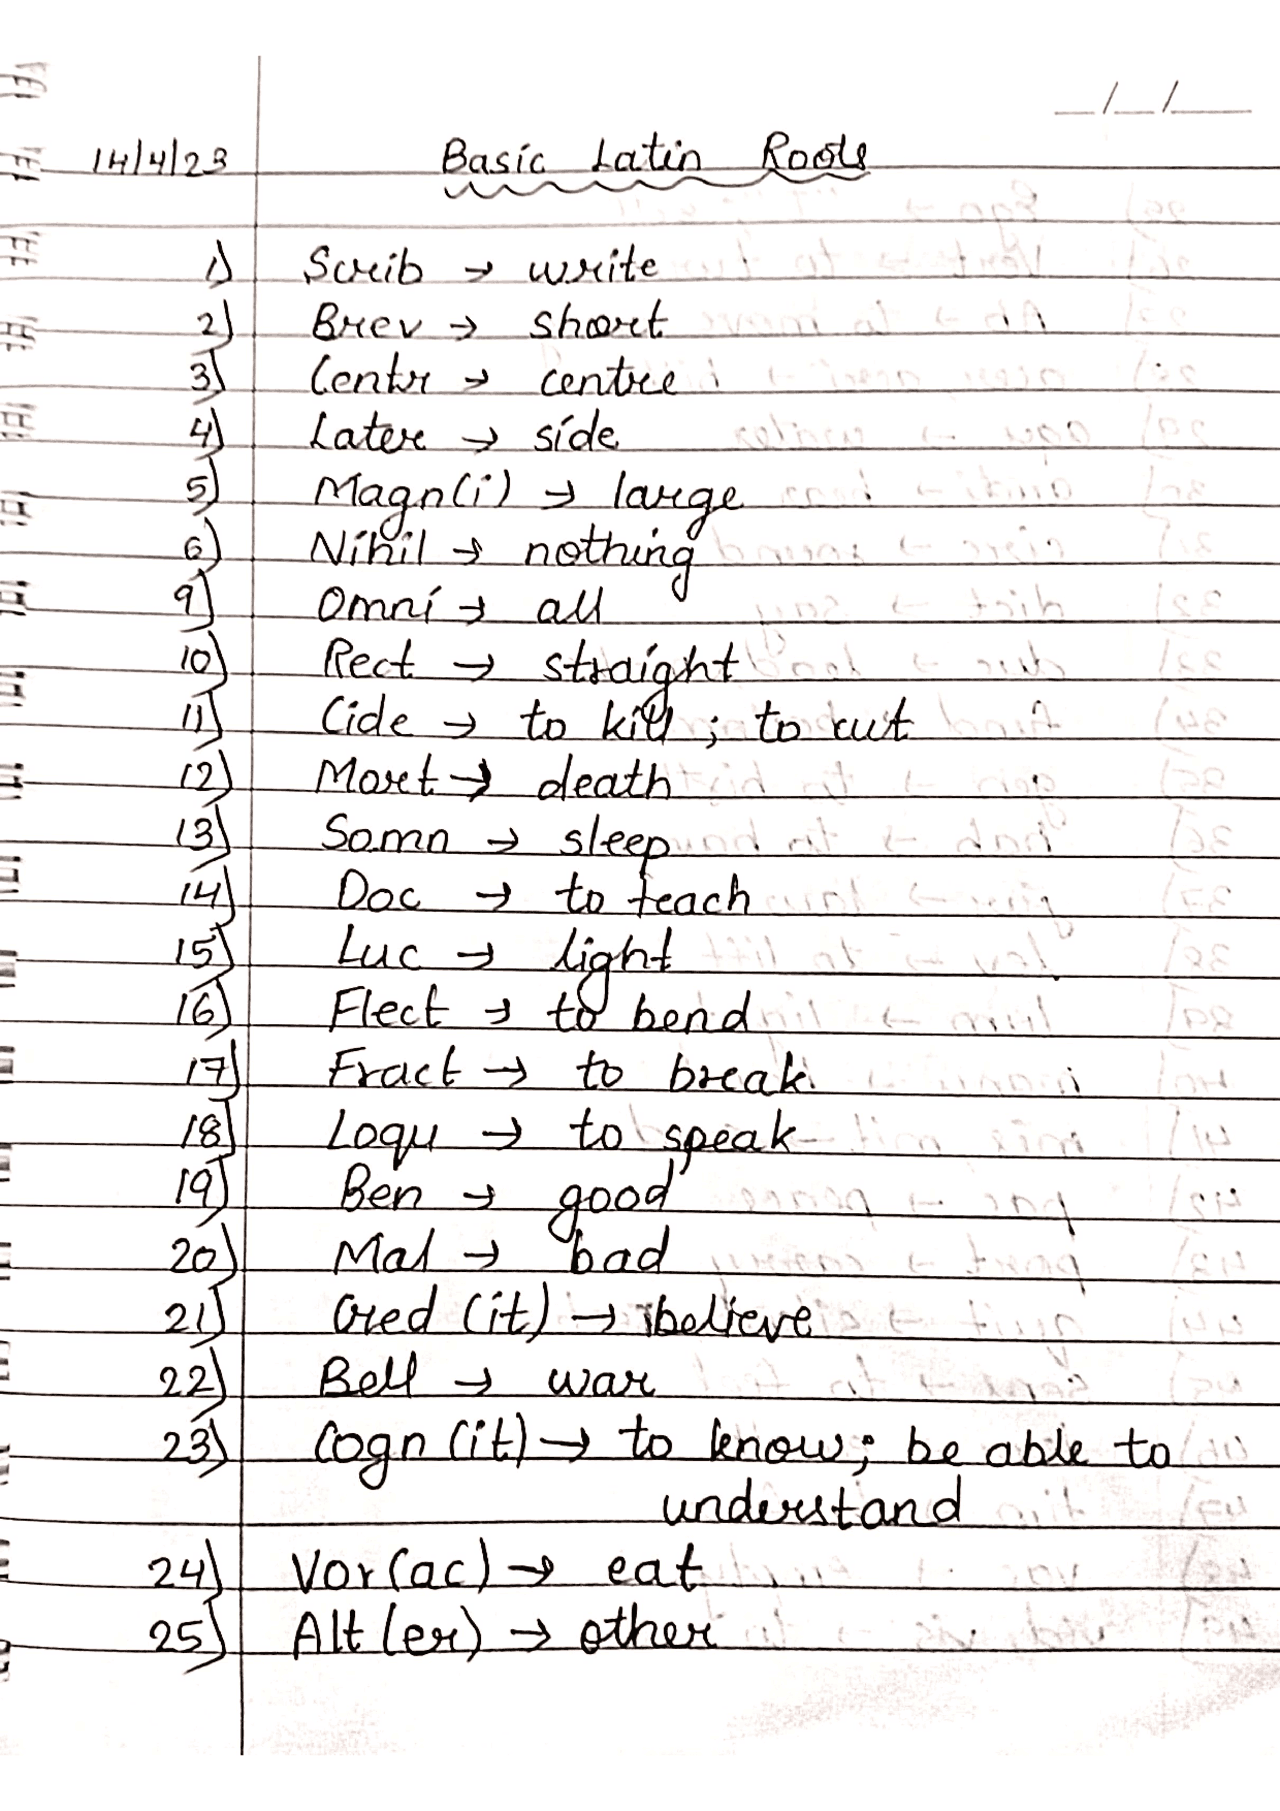 __/__/____
14/4/23 Basic Latin Roots
1) Scrib → write
2) Brev → short
3) Centr → centre
4) Later → side
5) Magn(i) → large
6) Nihil → nothing
9) Omni → all
10) Rect → straight
11) Cide → to kill ; to cut
12) Mort → death
13) Somn → sleep
14) Doc → to teach
15) Luc → light
16) Flect → to bend
17) Fract → to break
18) Loqu → to speak
19) Ben → good
20) Mal → bad
21) Cred (it) → believe
22) Bell → war
23) Cogn (it) → to know; be able to
understand
24) Vor(ac) → eat
25) Alt (er) → other